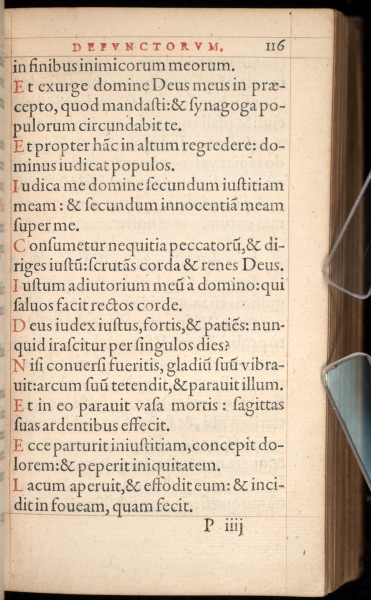 DEFVNCTORVM. 116
in finibus inimicorum meorum.
Et exurge domine Deus meus in præ-
cepto, quod mandaſti:& ſynagoga po-
pulorum circundabit te.
Et propter hãc in altum regredere: do-
minus iudicat populos.
Iudica me domine ſecundum iuſtitiam
meam : & ſecundum innocentiã meam
ſuper me.
Conſumetur nequitia peccatorũ,& di-
riges iuſtũ:ſcrutãs corda & renes Deus.
Iuſtum adiutorium meũ à domino:qui
ſaluos facit rectos corde.
Deus iudex iuſtus,fortis,& patiẽs: nun-
quid iraſcitur per ſingulos dies?
Niſi conuerſi fueritis, gladiũ ſuũ vibra-
uit:arcum ſuũ tetendit,&parauit illum.
Et in eo parauit vaſa mortis : ſagittas
ſuas ardentibus effecit.
Ecce parturit iniuſtitiam,concepit do-
lorem:& peperit iniquitatem.
Lacum aperuit,& effodit eum: & inci-
dit in foueam, quam fecit.
P iiij